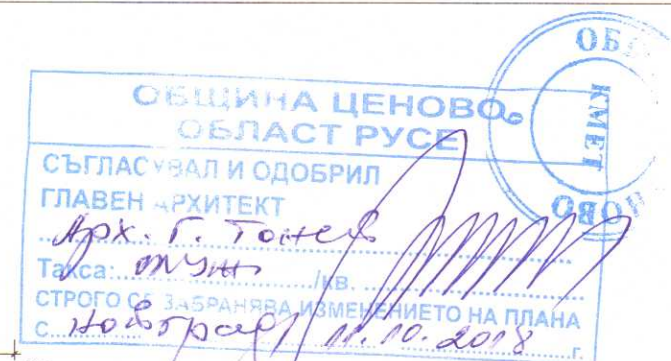 ОБЩИНА ЦЕНОВО
ОБЛАСТ РУСЕ
СЪГЛАСУВАЛ И ОДОБРИЛ
ГЛАВЕН АРХИТЕКТ
Арх. Г. Тонев
Такса: /кв.
СТРОГО СЕ ЗАБРАНЯВА ИЗМЕНЕНИЕТО НА ПЛАНА
с. Новград 11.10.2018 г.
КМЕТ